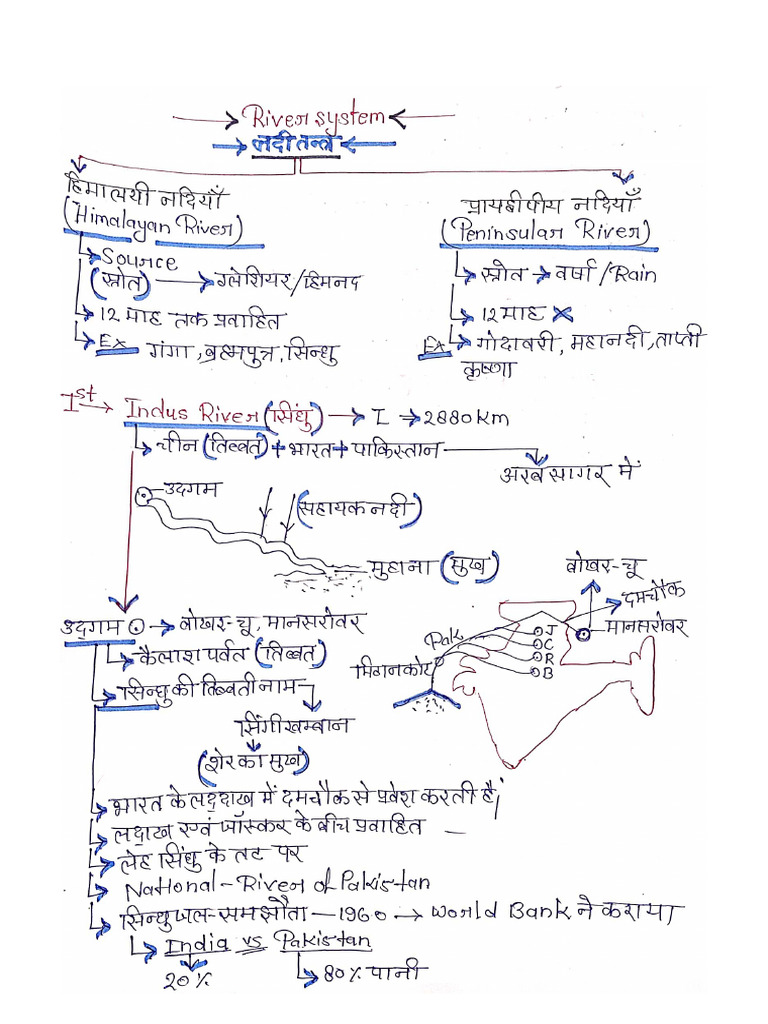 River system
नदी तन्त्र
हिमालयी नदियाँ
(Himalayan River)
Source
(स्रोत) → ग्लेशियर/हिमनद
12 माह तक प्रवाहित
Ex गंगा, ब्रह्मपुत्र, सिन्धु
प्रायद्वीपीय नदियाँ
(Peninsular River)
स्रोत → वर्षा/Rain
12 माह ×
Ex गोदावरी, महानदी, ताप्ती
कृष्णा
Ist → Indus River (सिंधु) → I → 2880 km
चीन (तिब्बत) + भारत + पाकिस्तान
अरब सागर में
उदगम
(सहायक नदी)
मुहाना (मुख)
बोखर-चू
दमचौक
मानसरोवर
Pak
J
C
R
B
मिठानकोट
उदगम → बोखर-चू, मानसरोवर
कैलाश पर्वत (तिब्बत)
सिन्धु की तिब्बती नाम
सिंगी खम्बान
(शेर का मुख)
भारत के लद्दाख में दमचौक से प्रवेश करती है
लद्दाख एवं जॉस्कर के बीच प्रवाहित
लेह सिंधु के तट पर
National-River of Pakistan
सिन्धु जल-समझौता - 1960 → World Bank ने कराया
India vs Pakistan
20%
80% पानी